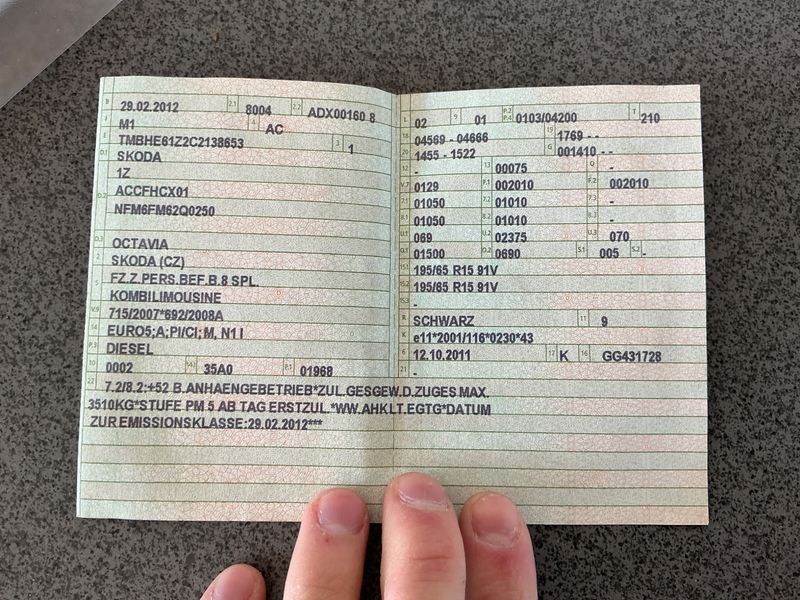 B 29.02.2012 2.1 8004 2.2 ADX00160 8
J M1 4 AC
E TMBHE61Z2C2138653 3 1
D.1 SKODA
1Z
D.2 ACCFHCX01
NFM6FM62Q0250
D.3 OCTAVIA
2 SKODA (CZ)
5 FZ.Z.PERS.BEF.B.8 SPL.
KOMBILIMOUSINE
V.9 715/2007*692/2008A
14 EURO5;A;PI/CI; M, N1 I
P.3 DIESEL
10 0002 14.1 35A0 P.1 01968
L 02 9 01 P.2 P.4 0103/04200 T 210
18 04569 - 04666 19 1769 - -
20 1455 - 1522 G 001410 - -
12 - 13 00075 Q -
V.7 0129 F.1 002010 F.2 002010
7.1 01050 7.2 01010 7.3 -
8.1 01050 8.2 01010 8.3 -
U.1 069 U.2 02375 U.3 070
O.1 01500 O.2 0690 S.1 005 S.2 -
15.1 195/65 R15 91V
15.2 195/65 R15 91V
15.3 -
R SCHWARZ 11 9
K e11*2001/116*0230*43
6 12.10.2011 17 K 16 GG431728
21 -
22 7.2/8.2:+52 B.ANHAENGEBETRIEB*ZUL.GESGEW.D.ZUGES MAX.
3510KG*STUFE PM 5 AB TAG ERSTZUL.*WW.AHKLT.EGTG*DATUM
ZUR EMISSIONSKLASSE:29.02.2012***